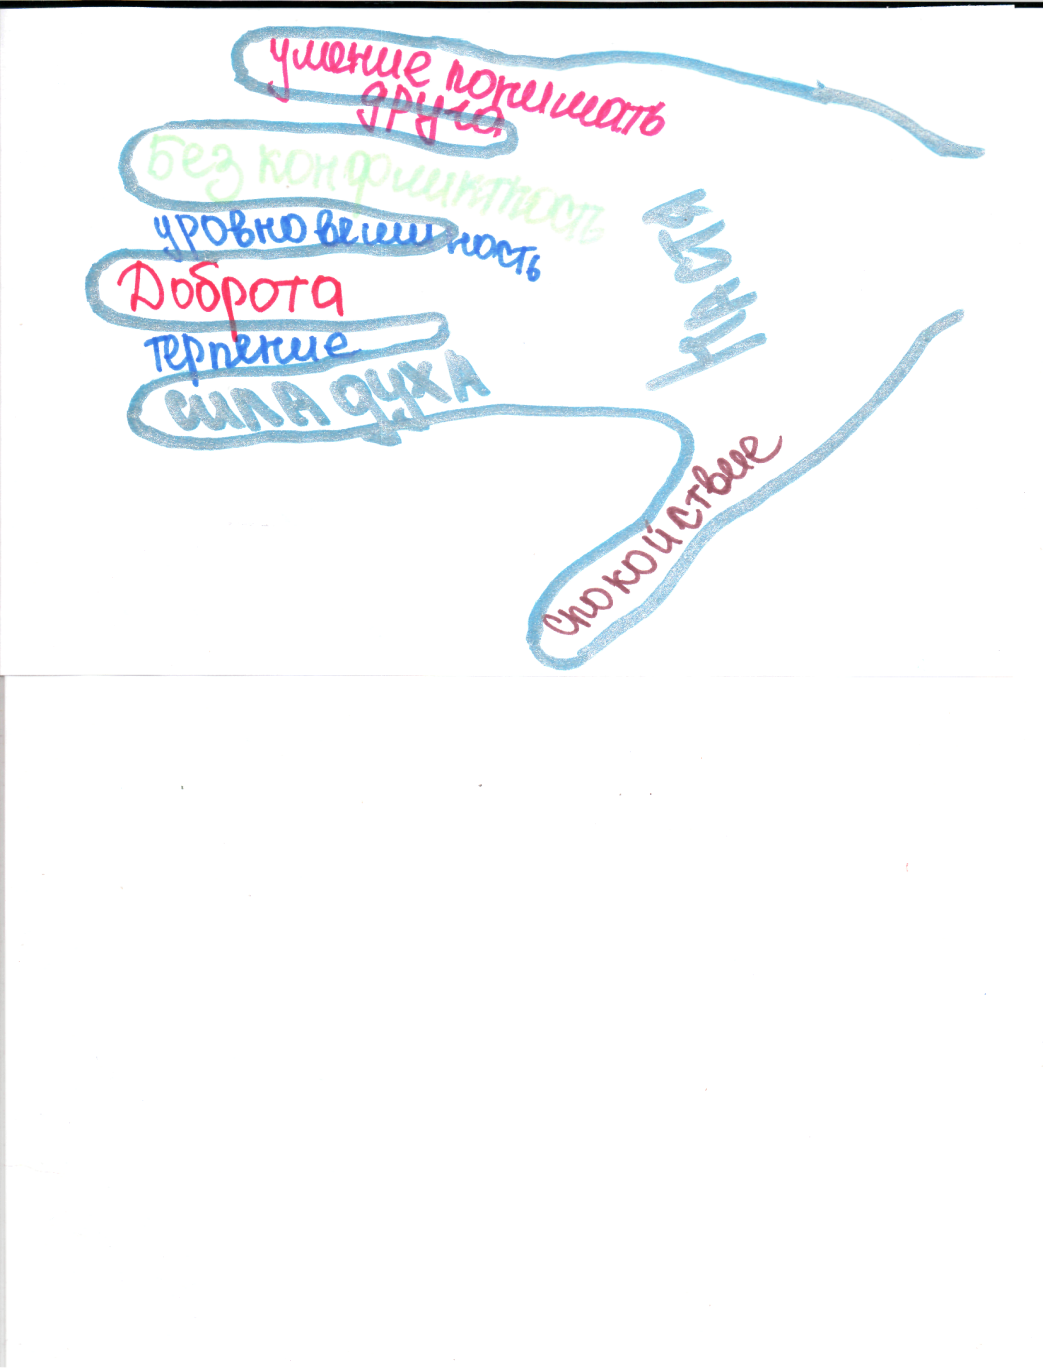 умение понимать
друга
Без конфликтность
уровновешность
Доброта
терпение
сила духа
Катя
спокойствие